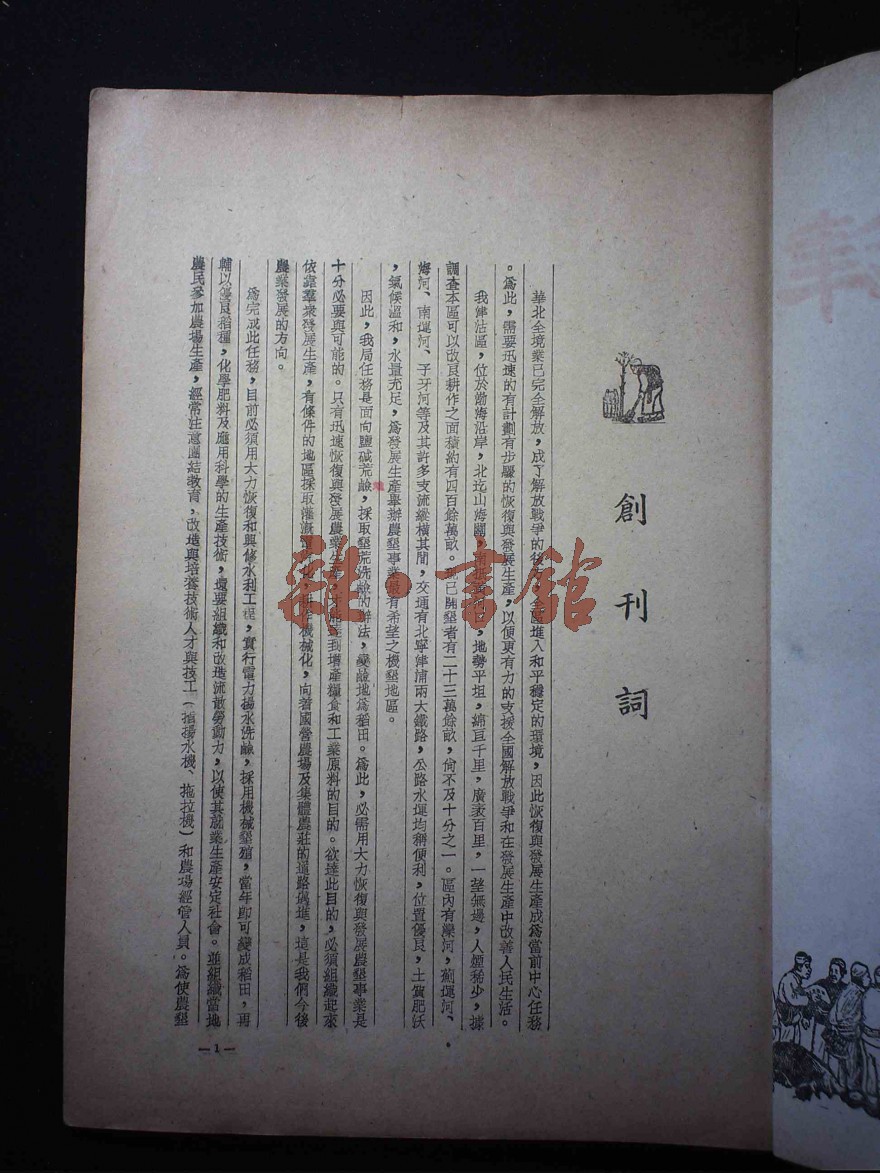 創刊詞
華北全境業已完全解放,成了解放戰爭的後方,全區進入和平穩定的環境,因此恢復與發展生產成爲當前中心任務
。爲此,需要迅速的有計劃有步驟的恢復與發展生產,以便更有力的支援全國解放戰爭和在發展生產中改善人民生活。
我津沽區,位於渤海沿岸,北迄山海關,南抵黃河口,地勢平坦,綿亘千里,廣袤百里,一望無邊,人煙稀少,據
調查本區可以改良耕作之面積約有四百餘萬畝。現已開墾者有二十三萬餘畝,尙不及十分之一。區內有灤河,薊運河、
海河、南運河、子牙河等及其許多支流縱橫其間,交通有北寧津浦兩大鐵路,公路水運均稱便利,位置優良,土質肥沃
,氣候溫和,水量充足,爲發展生產舉辦農墾事業最有希望之機墾地區。
因此,我局任務是面向鹽碱荒鹼,採取墾荒洗鹼的辦法,變鹼地爲稻田。爲此,必需用大力恢復與發展農墾事業是
十分必要與可能的。只有迅速恢復與發展農業生產,才能達我增產糧食和工業原料的目的。欲達此目的,必須組織起來
依靠羣衆發展生產,有條件的地區採取灌漑電力化,耕作機械化,向着國營農場及集體農莊的道路邁進,這是我們今後
農業發展的方向。
爲完成此任務,目前必須用大力恢復和興修水利工程,實行電力揚水洗鹼,採用機械墾殖,當年卽可變成稻田,再
輔以優良稻種,化學肥料及應用科學的生產技術,還要組織和改造流散勞動力,以使其就業生產安定社會。並組織當地
農民參加農場生產,經常注意團結教育,改造與培養技術人才與技工(指揚水機、拖拉機)和農場經管人員。爲使農墾
—1—
雜·書館